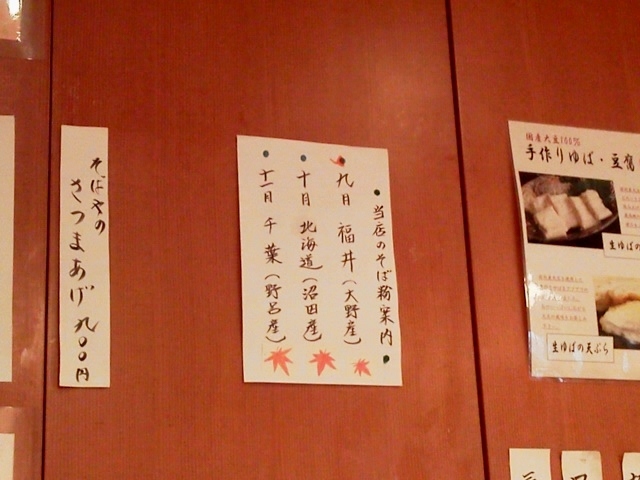 国産大豆100%
手作りゆば・豆腐
生ゆばの
生ゆばの天ぷら
当店のそば粉案内
九月 福井(大野産)
十月 北海道(沼田産)
十一月 千葉(野呂産)
そばやの
さつまあげ 九〇〇円